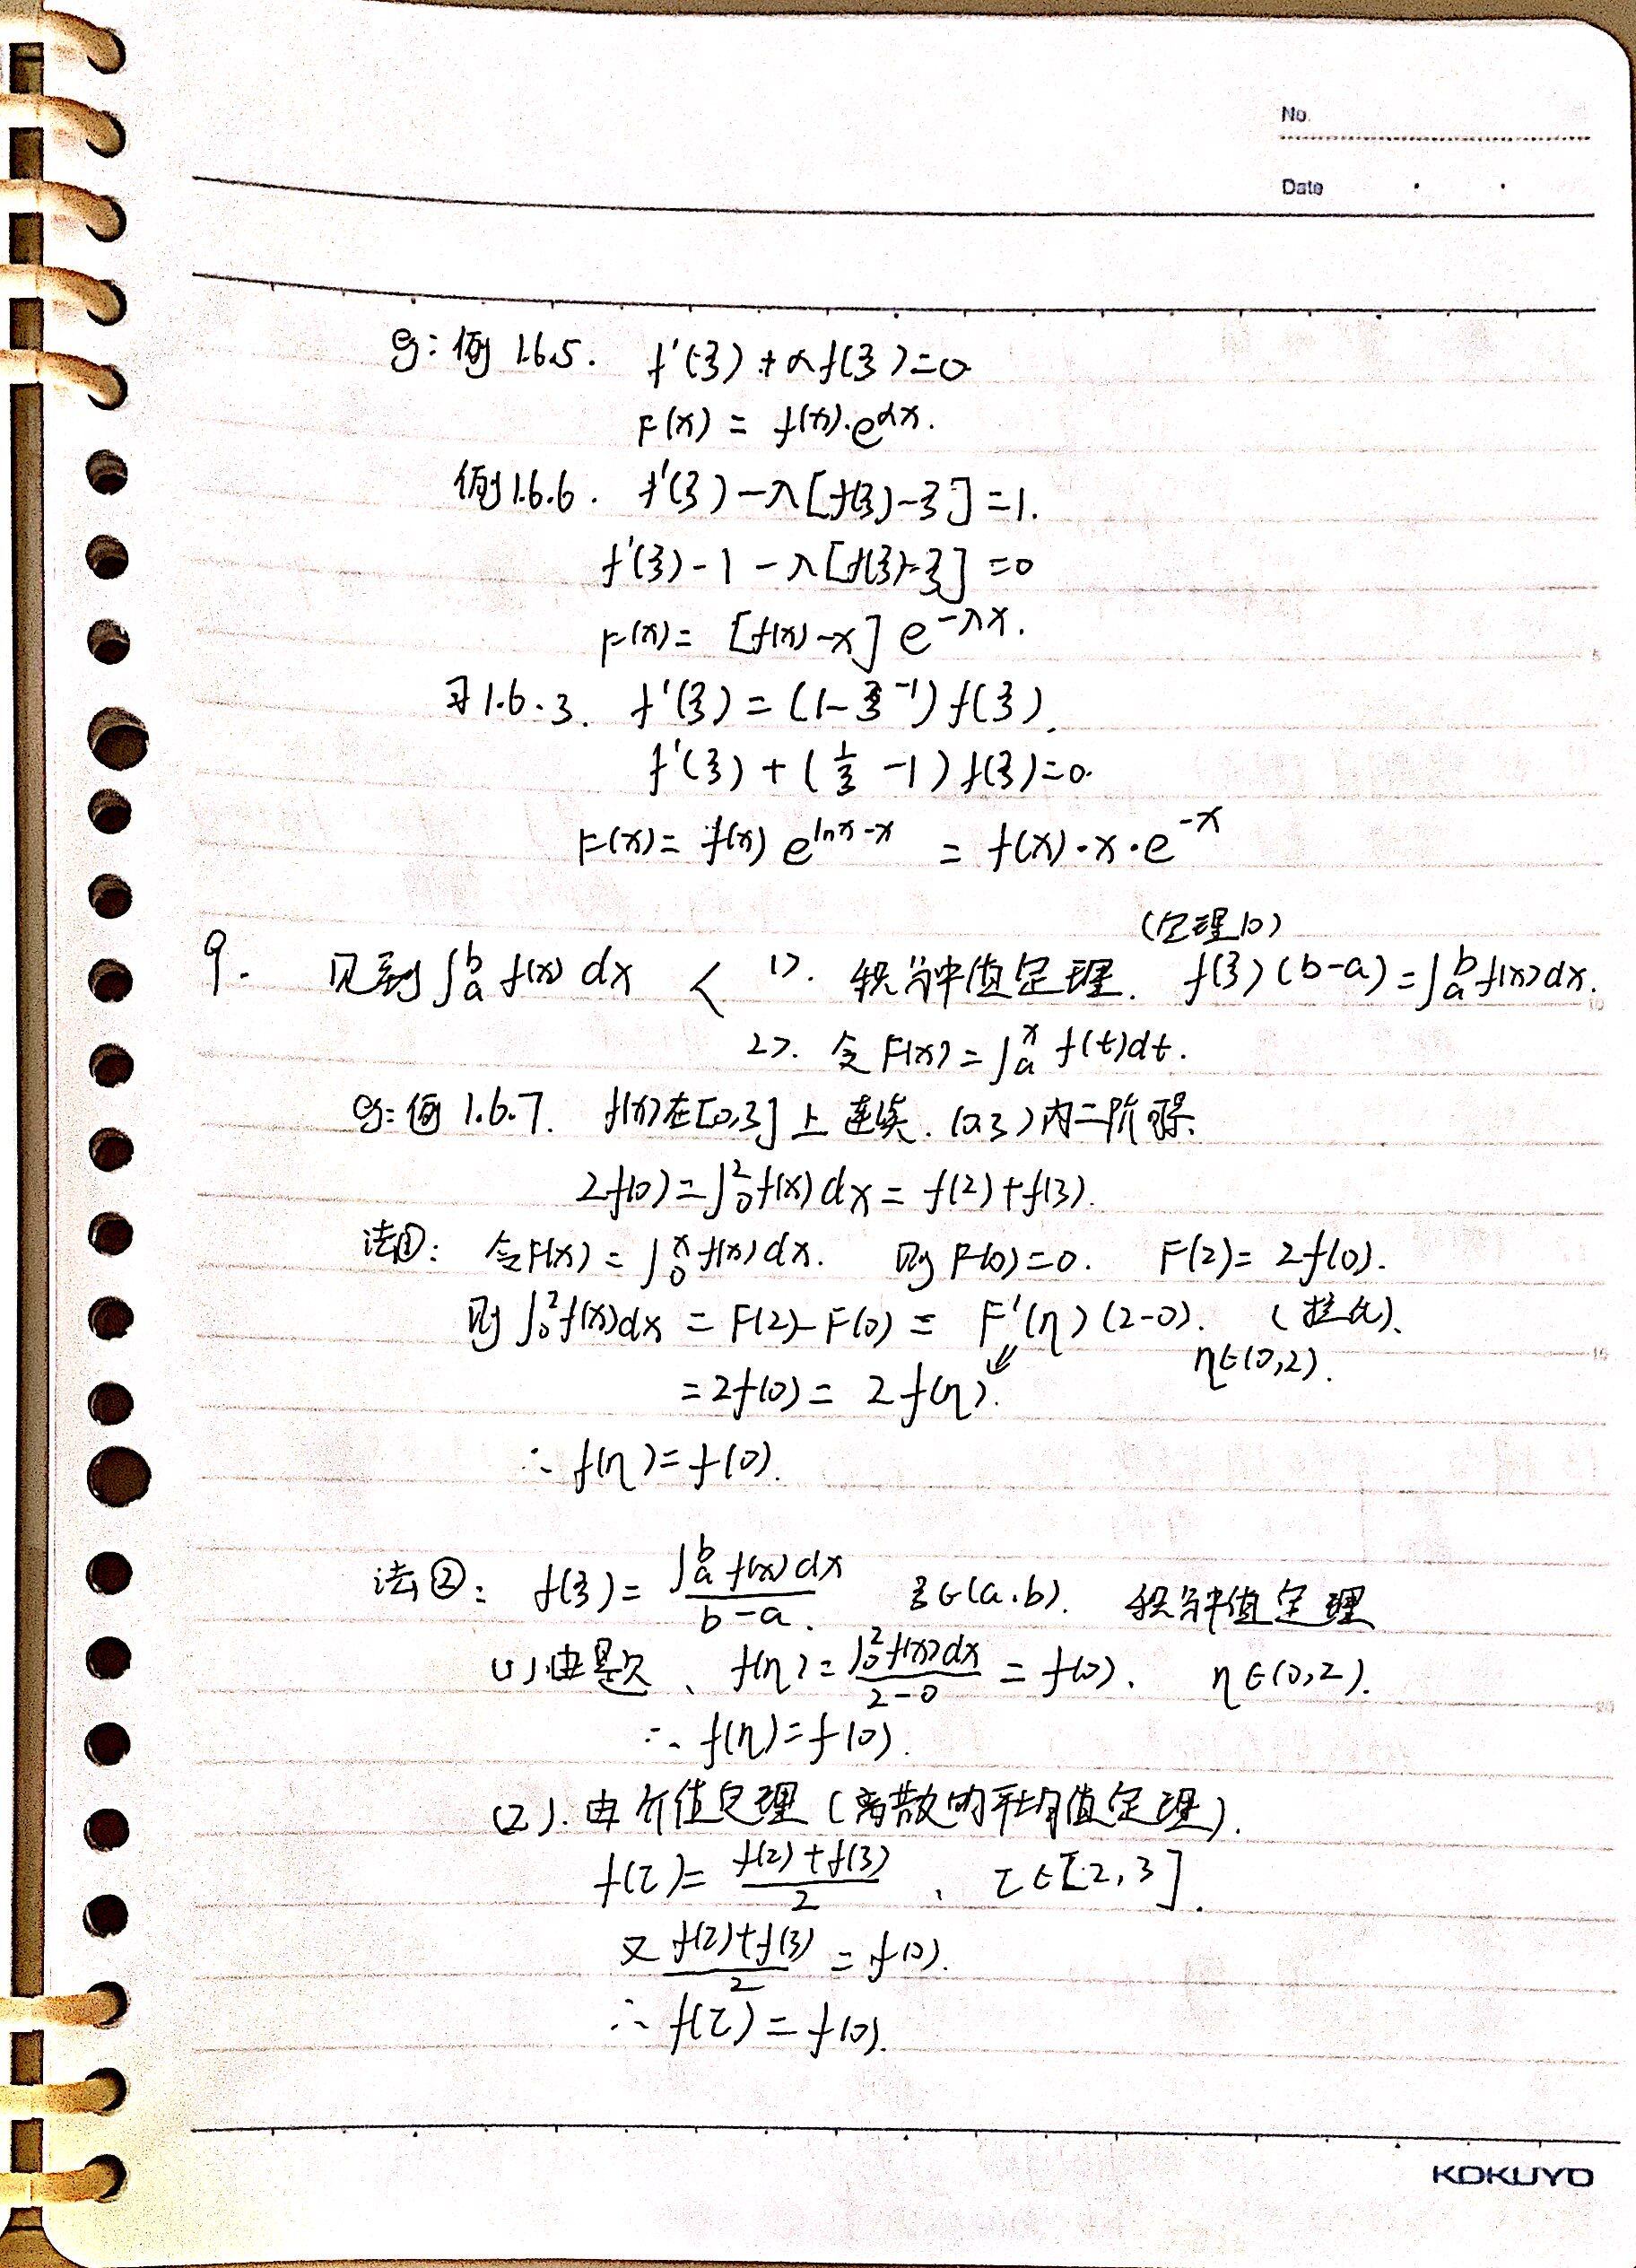 No.
Date
eg: 例 1.6.5. f'(ξ)+αf(ξ)=0
F(x) = f(x)·e^{αx}.
例1.6.6. f'(ξ)-λ[f(ξ)-ξ]=1.
f'(ξ)-1-λ[f(ξ)-ξ]=0
F(x)= [f(x)-x] e^{-λx}.
习1.6.3. f'(ξ)=(1-ξ^{-1})f(ξ).
f'(ξ)+(1/ξ -1)f(ξ)=0.
F(x)= f(x) e^{lnx-x} = f(x)·x·e^{-x}
(定理10)
9. 见到∫_a^b f(x) dx < 1>. 积分中值定理. f(ξ)(b-a)=∫_a^b f(x)dx.
2>. 令F(x)=∫_a^x f(t)dt.
eg: 例 1.6.7. f(x)在[0,3]上连续. (0,3)内二阶可导.
2f(0)=∫_0^2 f(x)dx=f(2)+f(3).
法①: 令F(x)=∫_0^x f(x)dx. 则F(0)=0. F(2)=2f(0).
则∫_0^2 f(x)dx = F(2)-F(0) = F'(η)(2-0). (拉氏).
η∈(0,2).
=2f(0)= 2f(η).
∴ f(η)=f(0).
法②: f(ξ)= ∫_a^b f(x)dx / b-a. ξ∈(a.b). 积分中值定理
(1)由题、f(η)= ∫_0^2 f(x)dx / 2-0 = f(0). η∈(0,2).
∴ f(η)=f(0).
(2). 由介值定理(离散的平均值定理).
f(τ)= f(2)+f(3) / 2 、 τ∈[2,3].
又 f(2)+f(3) / 2 = f(0).
∴ f(τ)=f(0).
KOKUYO